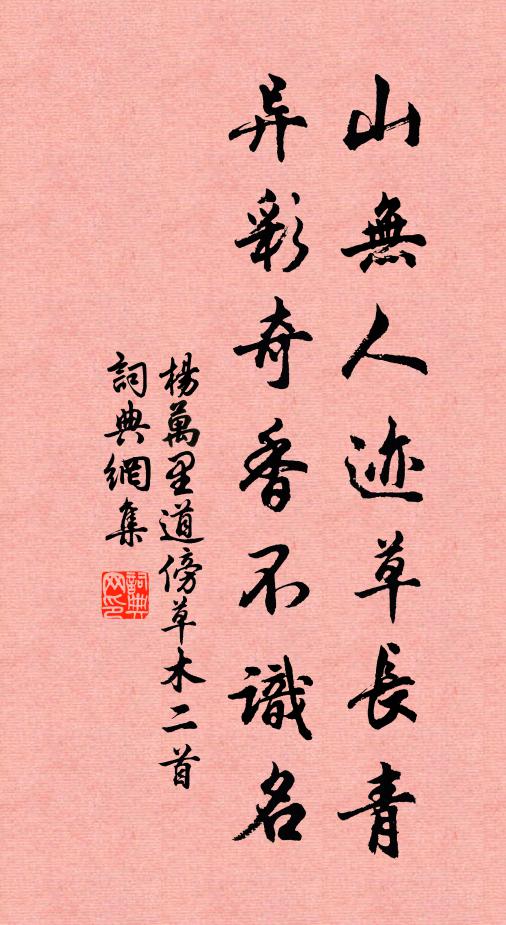 山無人迹草長青
异彩奇香不識名
楊萬里道傍草木二首
詞典網集
詞典网印